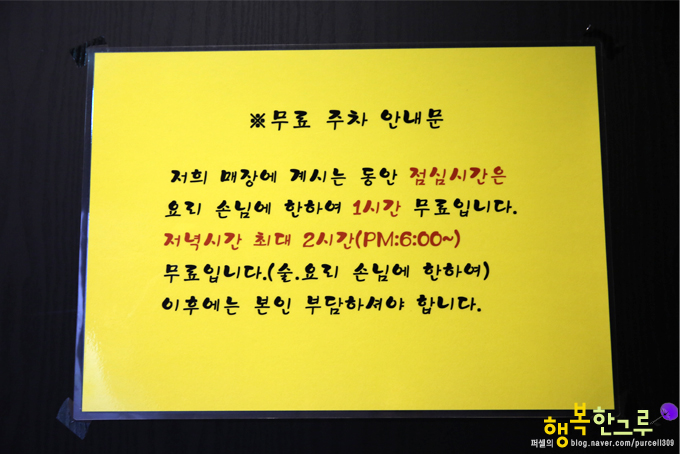 ※무료 주차 안내문
저희 매장에 계시는 동안 점심시간은
요리 손님에 한하여 1시간 무료입니다.
저녁시간 최대 2시간(PM:6:00~)
무료입니다.(술.요리 손님에 한하여)
이후에는 본인 부담하셔야 합니다.
행복한그루
퍼셀의 blog.naver.com/purcell309